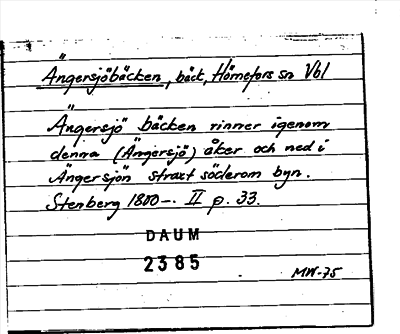 Ängersjöbäcken, bäck, Hörnefors sn Vbl
Ängersjö bäcken rinner igenom
denna (Ängersjö) åker och ned i
Ängersjön straxt söderom byn.
Stenberg 1800-. II p. 33.
DAUM
2385
MW-75